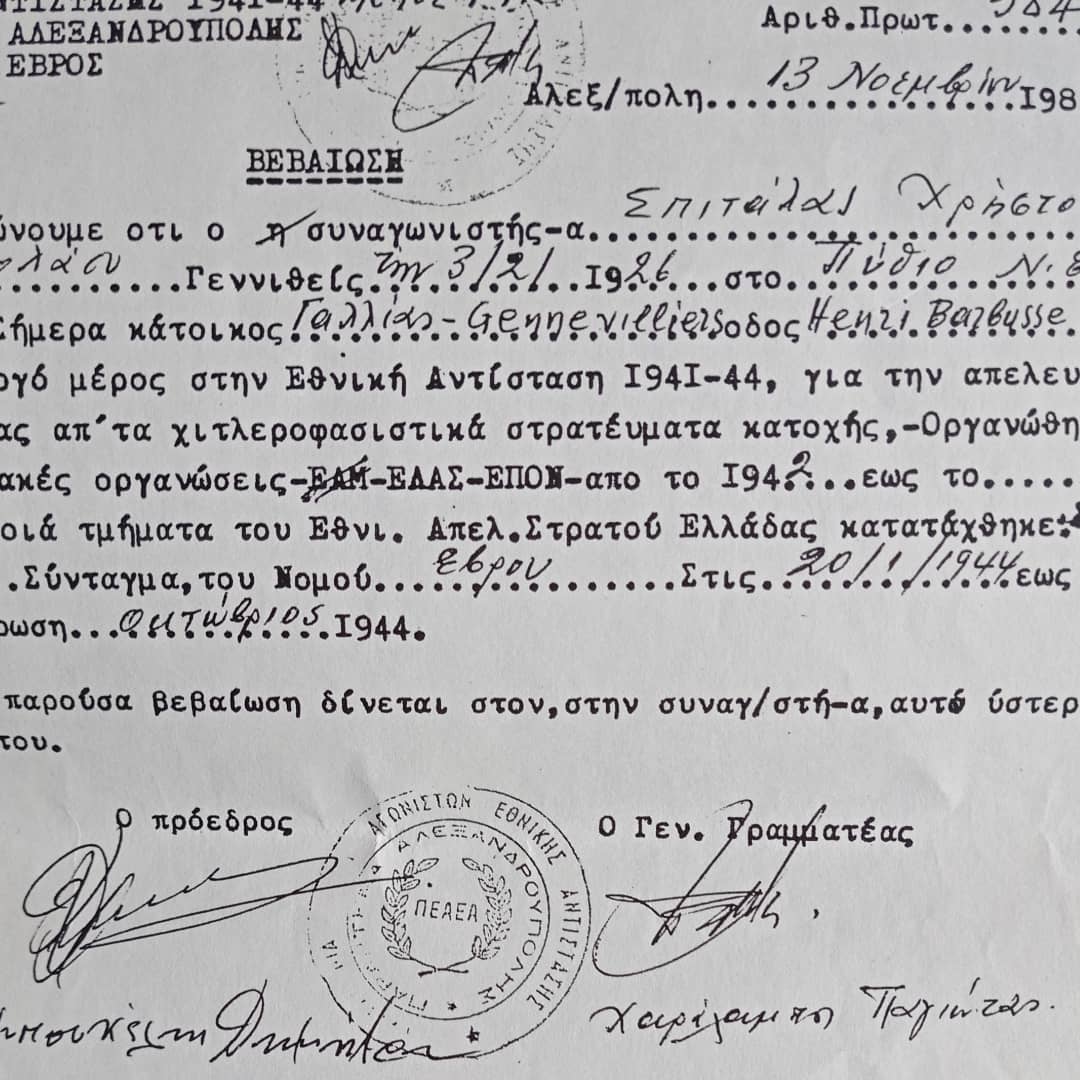 ΝΤΙΣΤΑΣΗΣ Ι94Ι-44
ΑΛΕΞΑΝΔΡΟΥΠΟΛΗΣ
Αριθ.Πρωτ..........
ΕΒΡΟΣ
Αλεξ/πολη..13 Νοεμβρίου..Ι98
ΒΕΒΑΙΩΣΗ
ύνουμε οτι ο η συναγωνιστής-α...Σπιτάλας Χρήστο
ολάου...Γεννιθείς.την 3/2/..Ι926...στο...Πύθιο Ν.Ε
ήμερα κάτοικος Γαλλίας-Gennevilliers οδος Henri Barbusse
ργό μέρος στην Εθνική Αντίσταση Ι94Ι-44, για την απελευ
ας απ΄τα χιτλεροφασιστικά στρατέυματα κατοχής,-Οργανώθη
ακές οργανώσεις-ΕΑΜ-ΕΛΑΣ-ΕΠΟΝ-απο το Ι942...εως το.....
οιά τμήματα του Εθνι. Απελ.Στρατού Ελλάδας κατατάχθηκε:
.Σύνταγμα,του Νομού...Εβρου.......Στις.20/1/1944.εως
ρωση...Οκτώβριος.Ι944.
παρούσα βεβαίωση δίνεται στον,στην συναγ/στή-α,αυτό ύστερ
του.
Ο πρόεδρος
Ο Γεν. Γραμματέας
ΑΓΩΝΙΣΤΩΝ ΕΘΝΙΚΗΣ ΑΝΤΙΣΤΑΣΗΣ
ΑΛΕΞΑΝΔΡΟΥΠΟΛΗΣ
ΠΕΑΕΑ
Χαράλαμπος Παγιάντας.